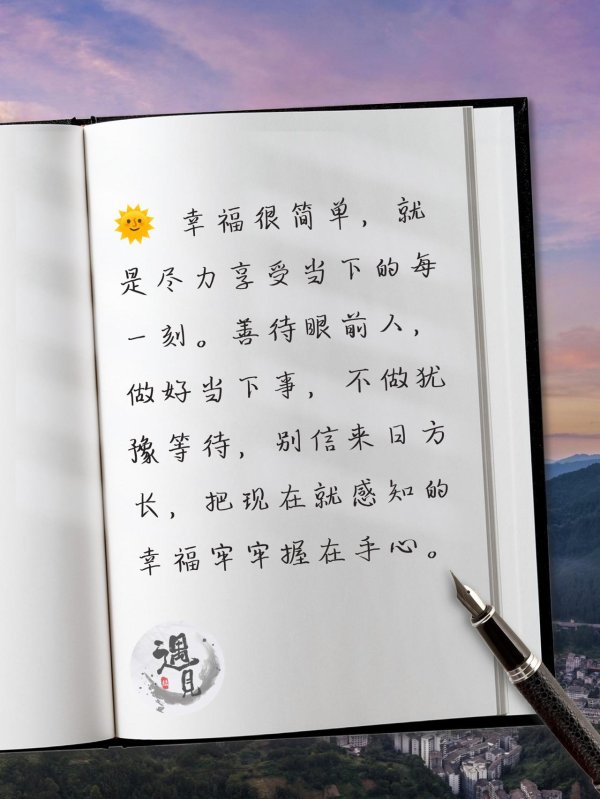 幸福很简单，就
是尽力享受当下的每
一刻。善待眼前人，
做好当下事，不做犹
豫等待，别信来日方
长，把现在就感知的
幸福牢牢握在手心。
遇見